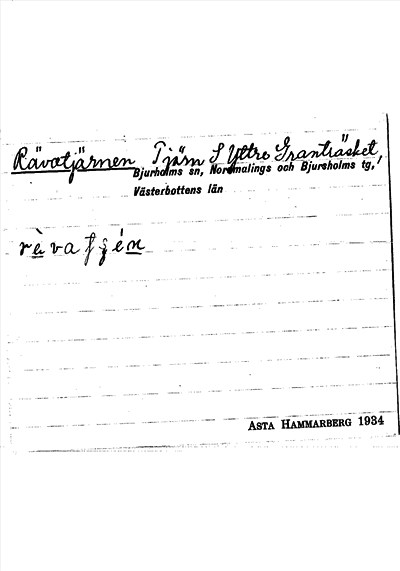 Rävatjärnen Tjärn S Yttre Granträsket,
Bjurholms sn, Nordmalings och Bjurholms tg,
Västerbottens län
ASTA HAMMARBERG 1934